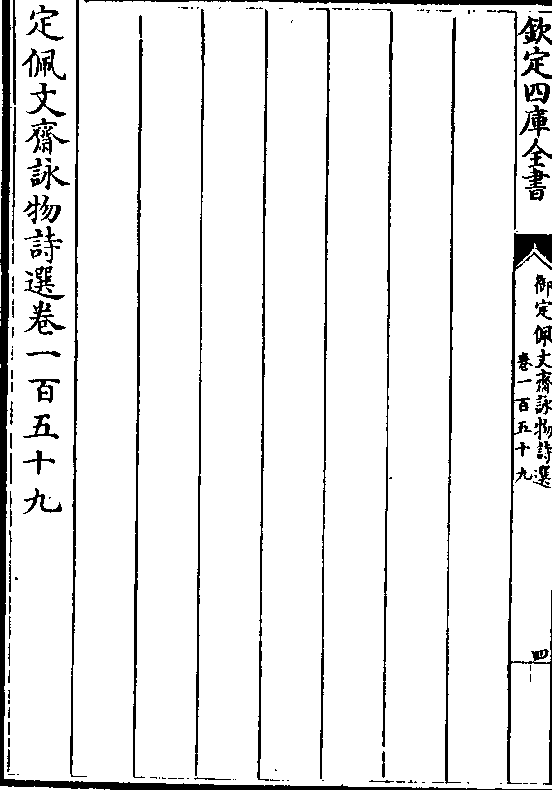 欽定四庫全書
御定佩文齋詠物詩選
卷一百五十九
四
定佩文齋詠物詩選卷一百五十九